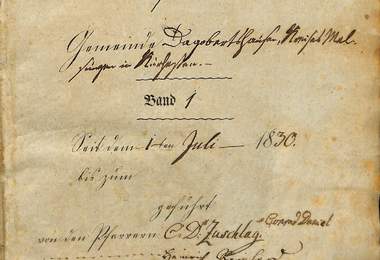 Gemeinde Dagobertshausen, Kreises Mel-
sungen in Kurhessen.
Band 1
Seit dem 1ten Juli 1830.
bis zum
geführt
von den Pfarrern C. D. Zuschlag. Conrad Daniel
Heinrich